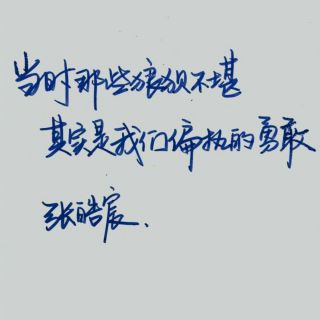 当时那些狼狈不堪
其实是我们偏执的勇敢
张皓宸.